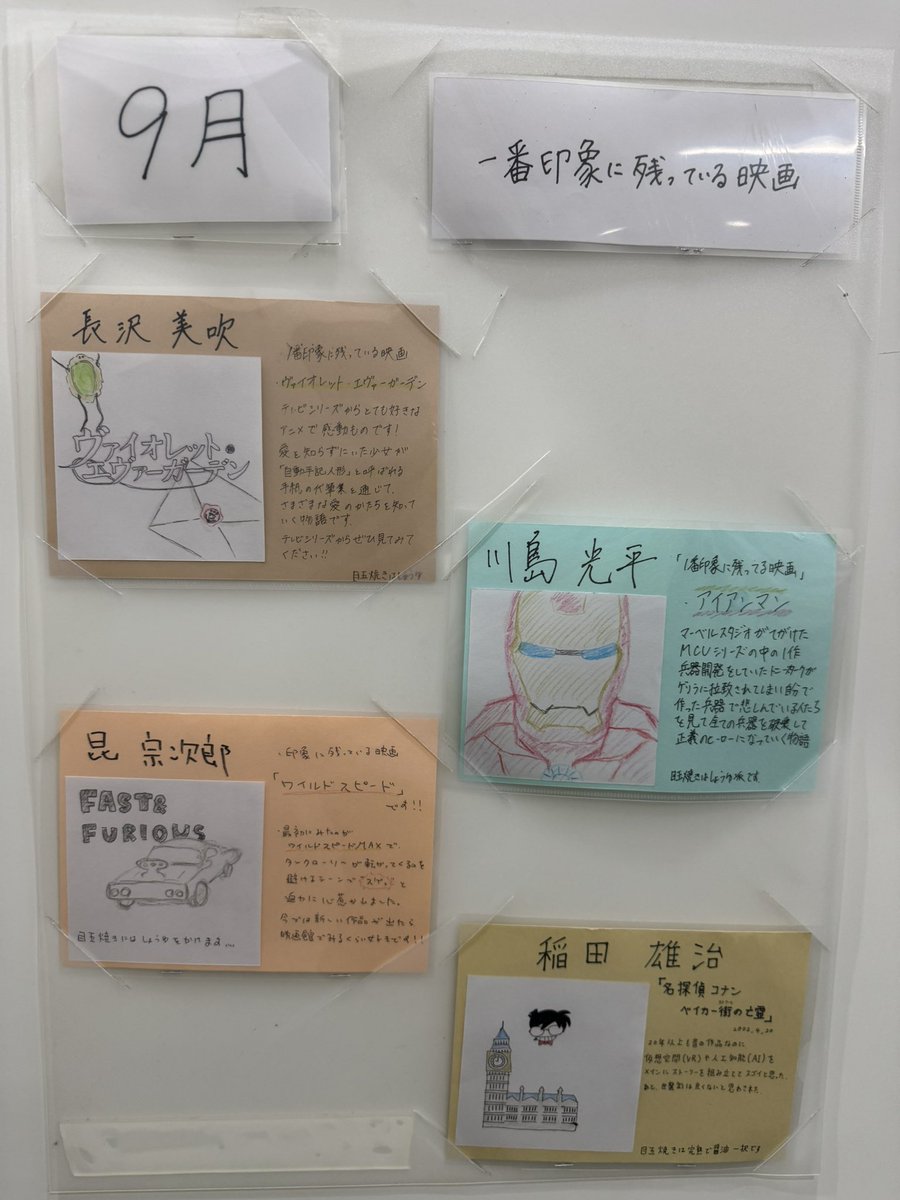 9月
一番印象に残っている映画
長沢 美吹
1番印象に残っている映画
・ヴァイオレット・エヴァーガーデン
テレビシリーズからとても好きな
アニメで感動ものです!
愛を知らずにいた少女が
「自動手記人形」と呼ばれる
手紙の代筆業を通じて、
さまざまな愛のかたちを知って
いく物語です。
テレビシリーズからぜひ見てみて
ください!!
目玉焼きはしょうゆ
ヴァイオレット・
エヴァーガーデン
川島 光平
「1番印象に残ってる映画」
・アイアンマン
マーベルスタジオがてがけた
MCUシリーズの中の1作
兵器開発をしていたトニースタークが
ゲリラに拉致されてしまい自分で
作った兵器で悲しんでいる人たち
を見て全ての兵器を破棄して
正義のヒーローになっていく物語
目玉焼きはしょうゆ派です
昆 宗次郎
・印象に残っている映画
「ワイルドスピード」
です!!
・最初にみたのが
ワイルドスピードMAXで、
タンクローリーが転がってくるのを
避けるシーンで と
迫力に心惹かれました。
今では新しい作品が出たら
映画館でみるくらい好きです!!
FAST&
FURIOUS
目玉焼きにはしょうゆをかけます...
稲田 雄治
「名探偵コナン
ベイカー街の亡霊」
2002.4.20
20年以上も昔の作品なのに
仮想空間(VR)や人工知能(AI)を
メインにストーリーを組み立ててスゴイと思った。
あと、世襲制は良くないと思わされた
目玉焼きは完熟で醤油一択です